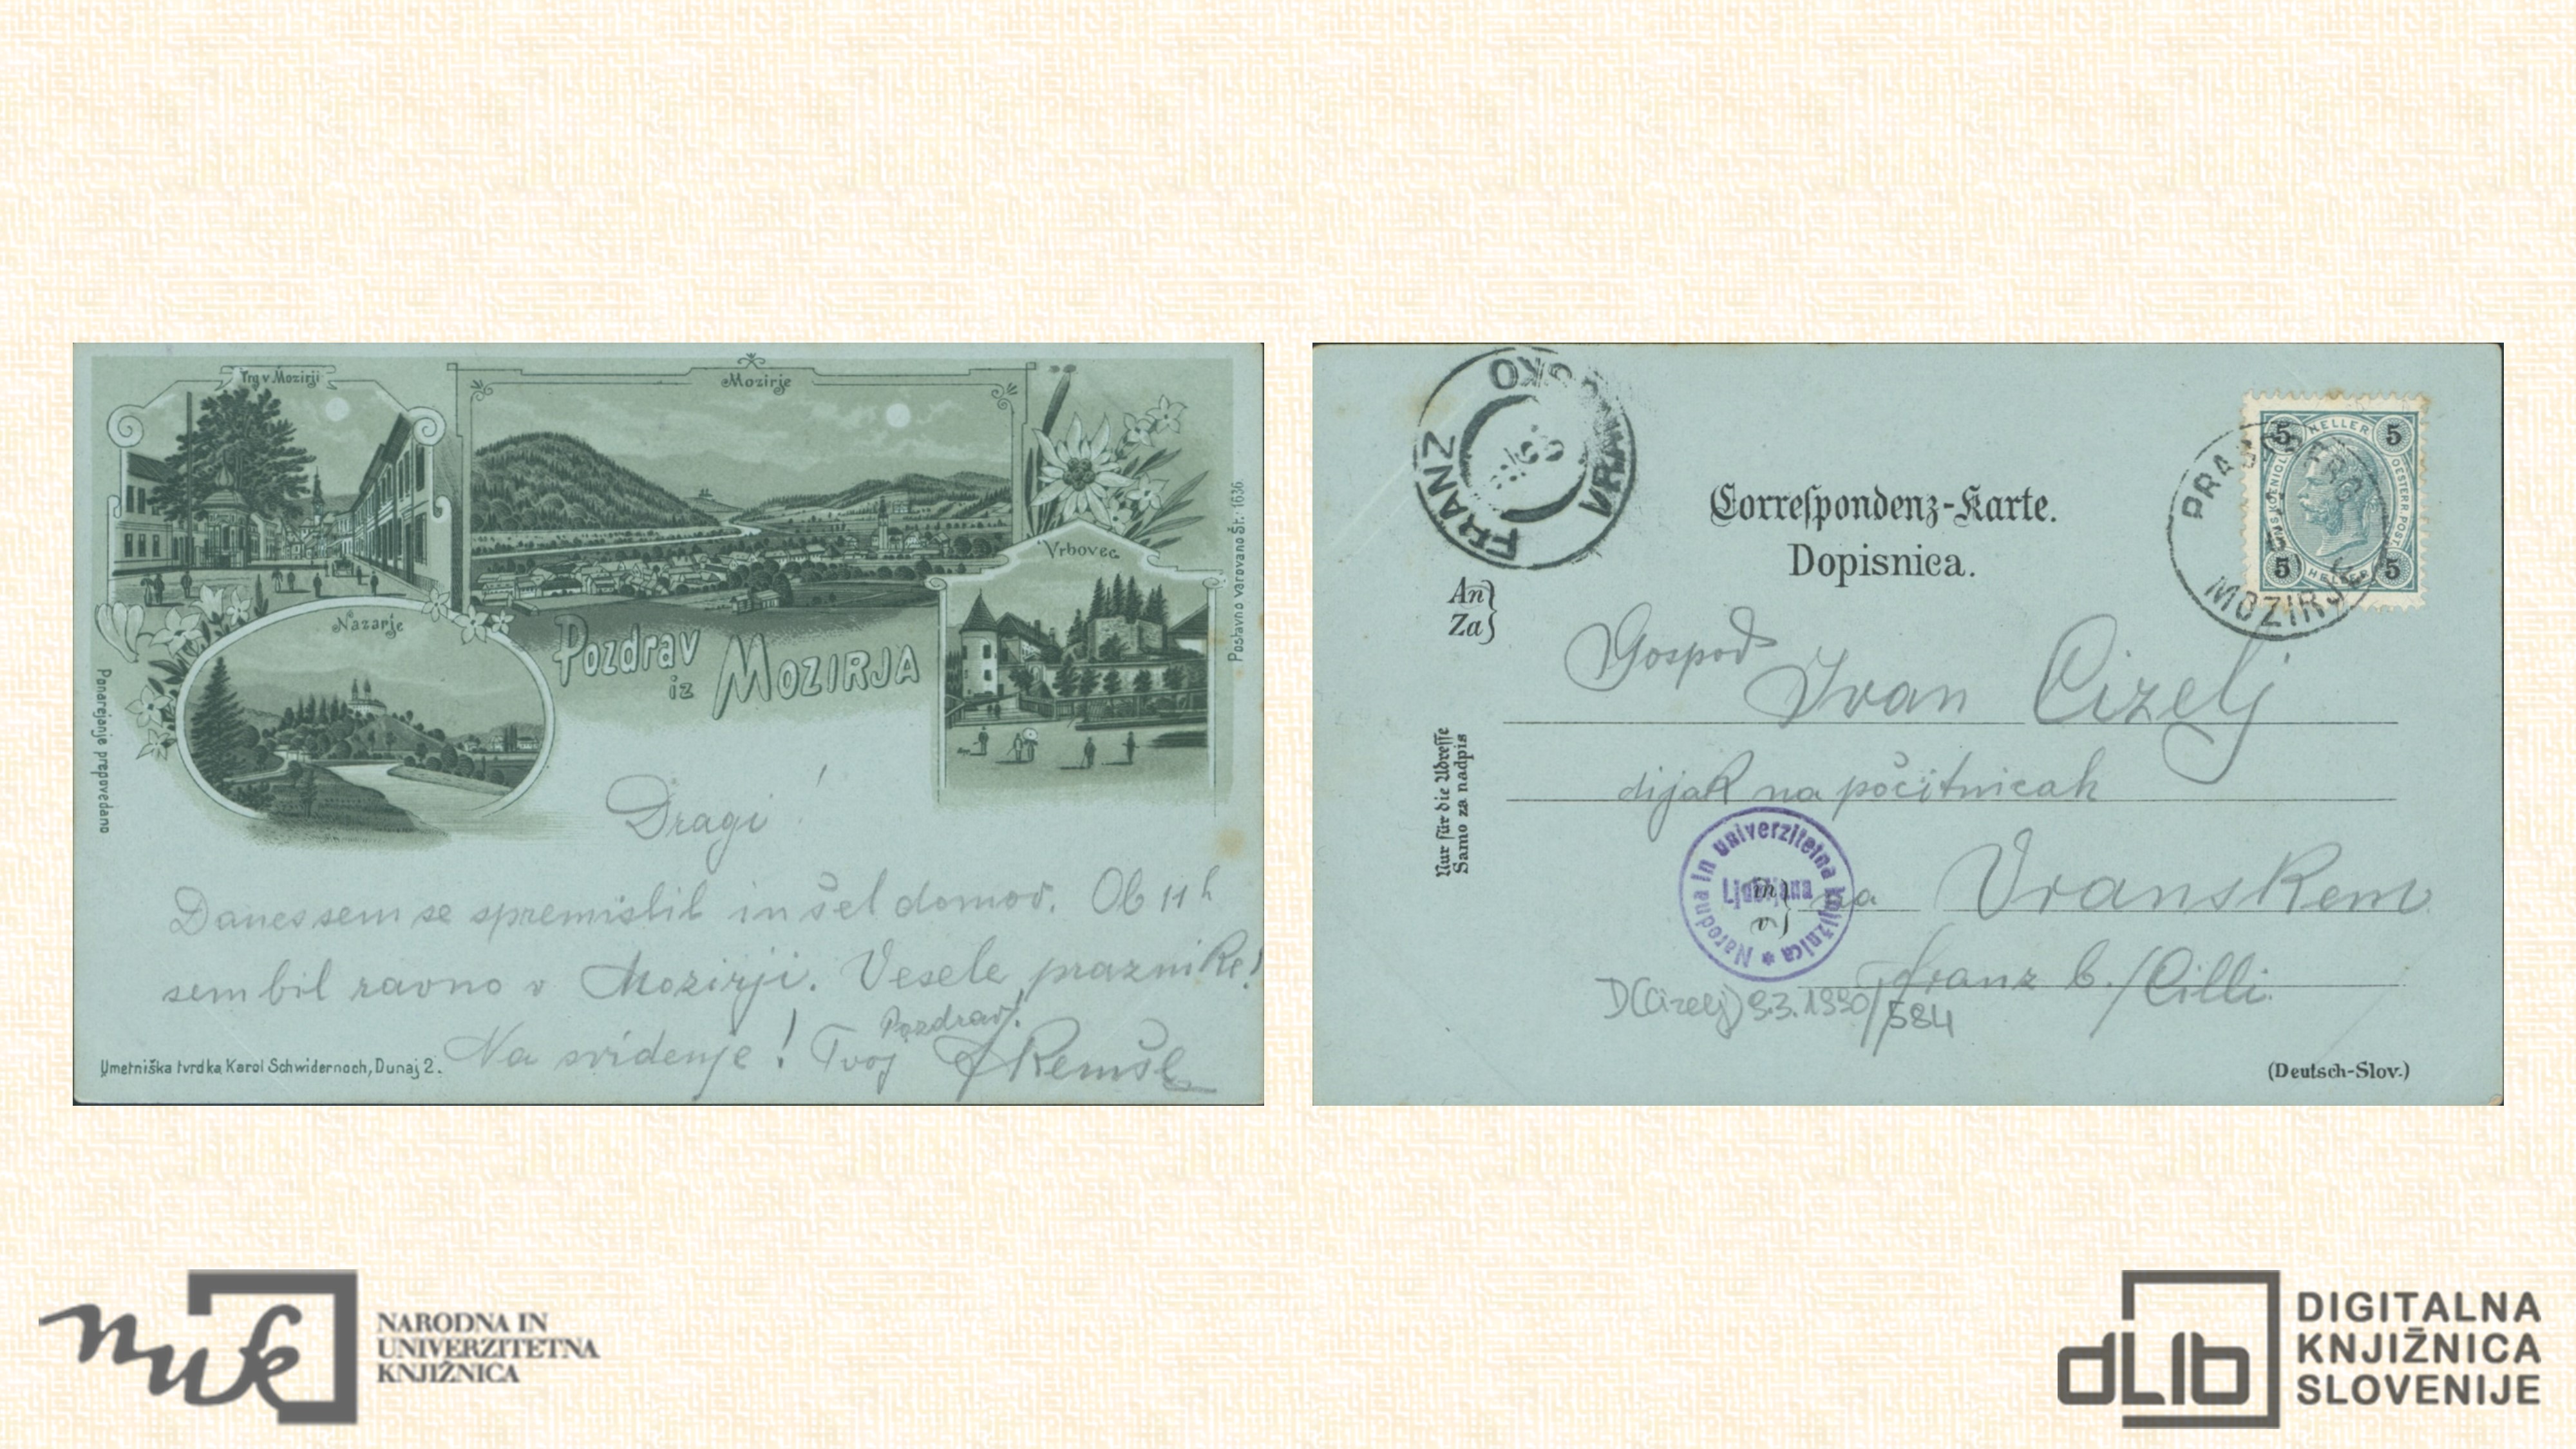 Trg v Mozirji
Mozirje
Vrbovec
Nazarje
Pozdrav
iz MOZIRJA
Ponarejanje prepovedano
Postavno varovano Št. 1636
Dragi !
Danes sem se spremislil in šel domov. Ob 11 h
sem bil ravno v Mozirji. Vesele praznike!
Pozdrav!
Na svidenje! Tvoj
Umetniška tvrdka Karol Schwidernoch, Dunaj 2.
FRANZ
VRANSKO
Correspondenz-Karte.
Dopisnica.
5 HELLER 5
5 HELLER 5
MOZIRJE
An
Za
Gospod
Ivan Cizelj
dijak na počitnicah
Nur für die Adresse
Samo za nadpis
Narodna in univerzitetna knjižnica *
Ljubljana
in
v
na Vranskem
Franz b./Cilli.
D(Cizelj) 9.3.1990/584
(Deutsch-Slov.)
nuk
NARODNA IN
UNIVERZITETNA
KNJIŽNICA
dLib
DIGITALNA
KNJIŽNICA
SLOVENIJE